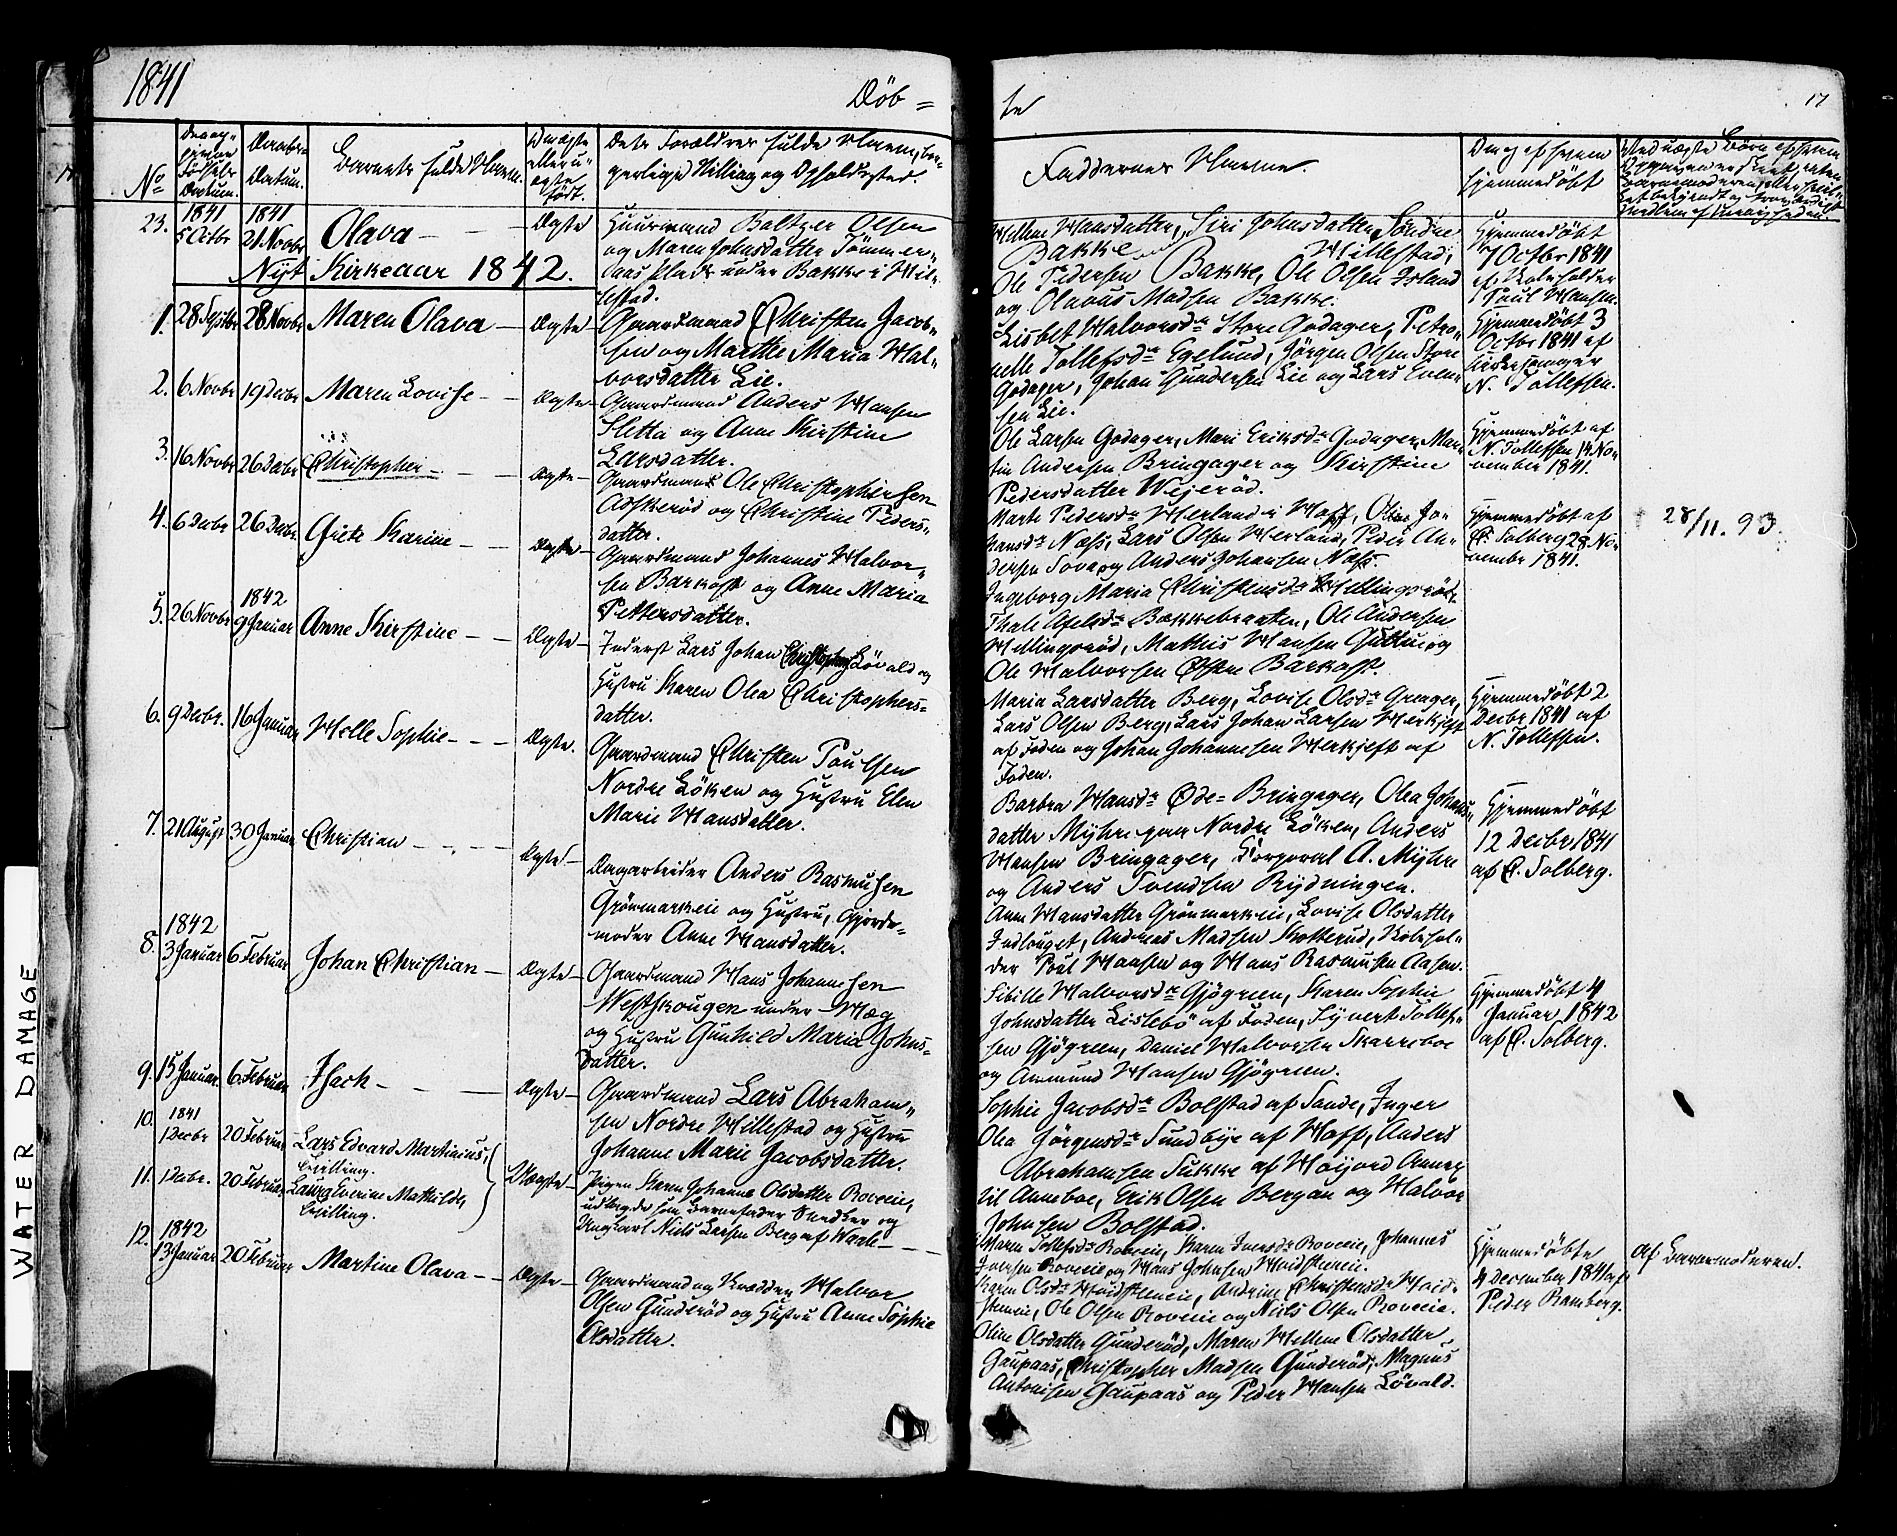 1841
Döb =
te
17
No
Dataum.
Daabs-
Datum.
Barnets fulde Navn.
Ægte
eller u-
ægte
født.
Dets Forældres fulde Navne, bor-
gerlige Stilling og Opholdssted.
Faddernes Navne.
Om og af hvem
hjemmedöbt
23.
1841
5 Octbr
1841
21 Novbr
Olava
Ægte
Huusmand Baltzer Olsen
og Maren Johnsdatter Tömmer-
aas Plads under Bakke i Hil-
lestad.
Hellene Hansdatter, Siri Johnsdatter Söndre
Bakke Hillestad,
Ole Pedersen Bakke, Ole Olsen Island
og Olavus Madsen Bakke.
Hjemmedöbt
7 Octbr 1841
af Skoleholder
Poul Hansen.
Nyt Kirkeaar 1842.
1. 28 Septbr 28 Novbr Maren Olava
Ægte
Gaardmand Christen Jacob-
sen og Marthe Maria Hal-
vorsdatter Lie.
Lisbet Halvorsdr Store Godager, Petro-
nelle Tollefsdr Egelund, Jörgen Olsen Store
Godager, Johan Gundersen Lie og Lars Even-
sen Lie.
Hjemmedöbt 3
Octbr 1841 af
Kirkesanger
N. Tollefsen.
2. 6 Novbr 19 Decbr Maren Lovise
Ægte
Gaardmand Anders Hansen
Sletta og Anne Kirstine
Larsdatter.
Ole Larsen Godager, Mari Eriksdr Godager, Mar-
tin Andersen Bringager og Kirstine
Pedersdatter Wejeröd.
Hjemmedöbt af
N. Tollefsen 14 No-
vember 1841.
3. 16 Novbr 26 Decbr Christopher
Ægte
Gaardmand Ole Christophersen
Adskeröd og Christine Peders-
datter.
Marte Pedersdr Herland i Hoff, Oline Jo-
hansdr Næss, Lars Olsen Herland, Peder An-
dersen Sova og Anders Johansen Næss.
Hjemmedöbt af
C. Solberg 28 No-
vember 1841.
28/11. 93.
4. 6 Decbr 26 Decbr Grete Karine
Ægte
Gaardmand Johannes Halvor-
sen Barkost og Anne Maria
Pettersdatter.
Ingeborg Maria Christensdr Hellingsröd,
Thale Axelsdr Bakkebraaten, Ole Andersen
Hellingsröd, Mathis Hansen Guttu og
Ole Halvorsen Østre Barkost.
5. 26 Novbr
1842
9 Januar Anne Kirstine
Ægte
Inderst Lars Johan Christophersen Lövald og
Hustru Karen Olea Christophers-
datter.
Maria Larsdatter Berg, Lovise Olsdr Greager,
Lars Olsen Berg, Lars Johan Larsen Herkjeft
af Foden og Johan Johannesen Herkjeft af
Foden.
Hjemmedöbt 2
Decbr 1841 af
N. Tollefsen.
6. 9 Decbr. 16 Januar Helle Sophie
Ægte.
Gaardmand Christen Poulsen
Nordre Löken og Hustru Elen
Marie Hansdatter.
Barbra Hansdr Øde-Bringager, Olea Johans-
datter Myhre paa Nordre Löken, Anders
Hansen Bringager, Korporal A. Myhre
og Anders Svendsen Rydningen.
Hjemmedöbt
12 Decbr 1841
af C. Solberg.
7. 21 August 30 Januar Christian
Ægte
Dagarbeider Anders Rasmusen
Grönmarkeie og Hustru, Gjorde-
moder Anne Hansdatter.
Anne Hansdatter Grönmarkeie, Lovise Olsdatter
Indlauget, Andreas Madsen Skotterud, Skolehol-
der Poul Hansen og Hans Rasmusen Aasen.
8.
1842
3 Januar 6 Februar Johan Christian
Ægte
Gaardmand Hans Johannesen
Westskougen under Hæg
og Hustru Gunhild Maria Johns-
datter.
Sibille Halvorsdr Gjögreen, Karen Sophie
Johnsdatter Lislebö af Foden, Syvert Tollef-
sen Gjögreen, Daniel Halvorsen Skarreboe
og Anmund Hansen Gjögreen.
Hjemmedöbt 4
Januar 1842
af C. Solberg.
9. 15 Januar 6 Februar Isach
Ægte
Gaardmand Lars Abraham-
sen Nordre Hillestad og Hustru
Johanne Marie Jacobsdatter.
Sophie Jacobsdr Bolstad af Sande, Inger
Olea Jörgensdr Sundbye af Hoff, Anders
Abrahamsen Sukke af Höijord Annex
til Anneboe, Erik Olsen Bergan og Halvor
Johnsen Bolstad.
10.
1841
1 Decbr 20 Februar Lars Edvard Martinius,
Tvilling.
11. 1 Decbr. 20 Februar Laura Everine Mathilde,
Tvilling.
Uægte
Pigen Karen Johanne Olsdatter Roveeie,
udlagde som Barnefader Snedker og
Ungkarl Niels Larsen Berg af Waale
Maren Tollefsdr Roveeie, Karen Iversdr Roveeie, Johannes
Iversen Roveeie og Hans Johnsen Hvidsteneie.
Karen Olsdr Hvidsteneie, Andrine Christensdr Hvid-
steneie, Ole Olsen Roveeie og Niels Olsen Roveeie.
Hjemmedöbte
4 December 1841 af
Peder Ramberg.
af Barnemoderen.
12.
1842
13 Januar 20 Februar Martine Olava
Ægte
Gaardmand og Skrædder Halvor
Olsen Gunderöd og Hustru Anne Sophie
Olsdatter.
Oline Olsdatter Gunderöd, Maren Hellene Olsdatter
Gaupaas, Christopher Madsen Gunderöd, Magnus
Antonisen Gaupaas og Peder Hansen Lövald.
WATER DAMAGE